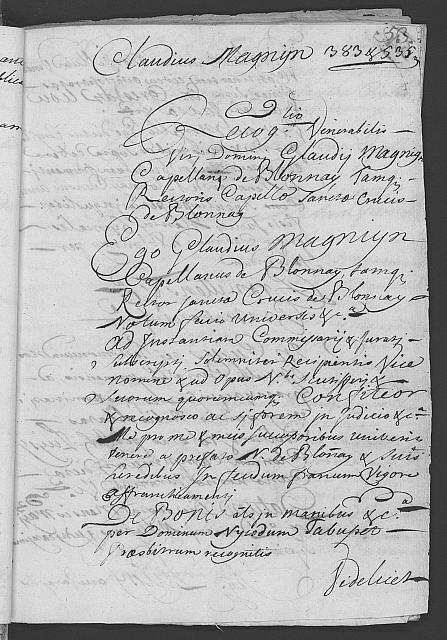 53.
Claudius Magnyn 383 & 535
Recog.tio Venerabilis
Viri Domini Glaudij Magnin
Capellani de Blonnay Tamq.
Rectoris Capellæ Sanctæ Crucis
de Blonnay
Ego Glaudius Magniyn
Capellanus de Blonnay, tamq.
Rector Sanctæ Crucis de Blonnay
Notum facio Universis &c.a
Ad Instantiam Commissarij & Jurati
subscripti solemniter Recipientis Vice
nomine & ad opus N.lis Scutifferi &
suorum quorumcumq. Confiteor
& recognosco ac si forem in Judicio &c.
Me pro me & meis successoribus universis
tenere a prefato N. de Blonay & suis
heredibus In feudum francum Vigore
affranchiamenti
De Bonis als in manibus &c.
per Dominum Nycodum Tabusset
præsbitrum recognitis
Videlicet